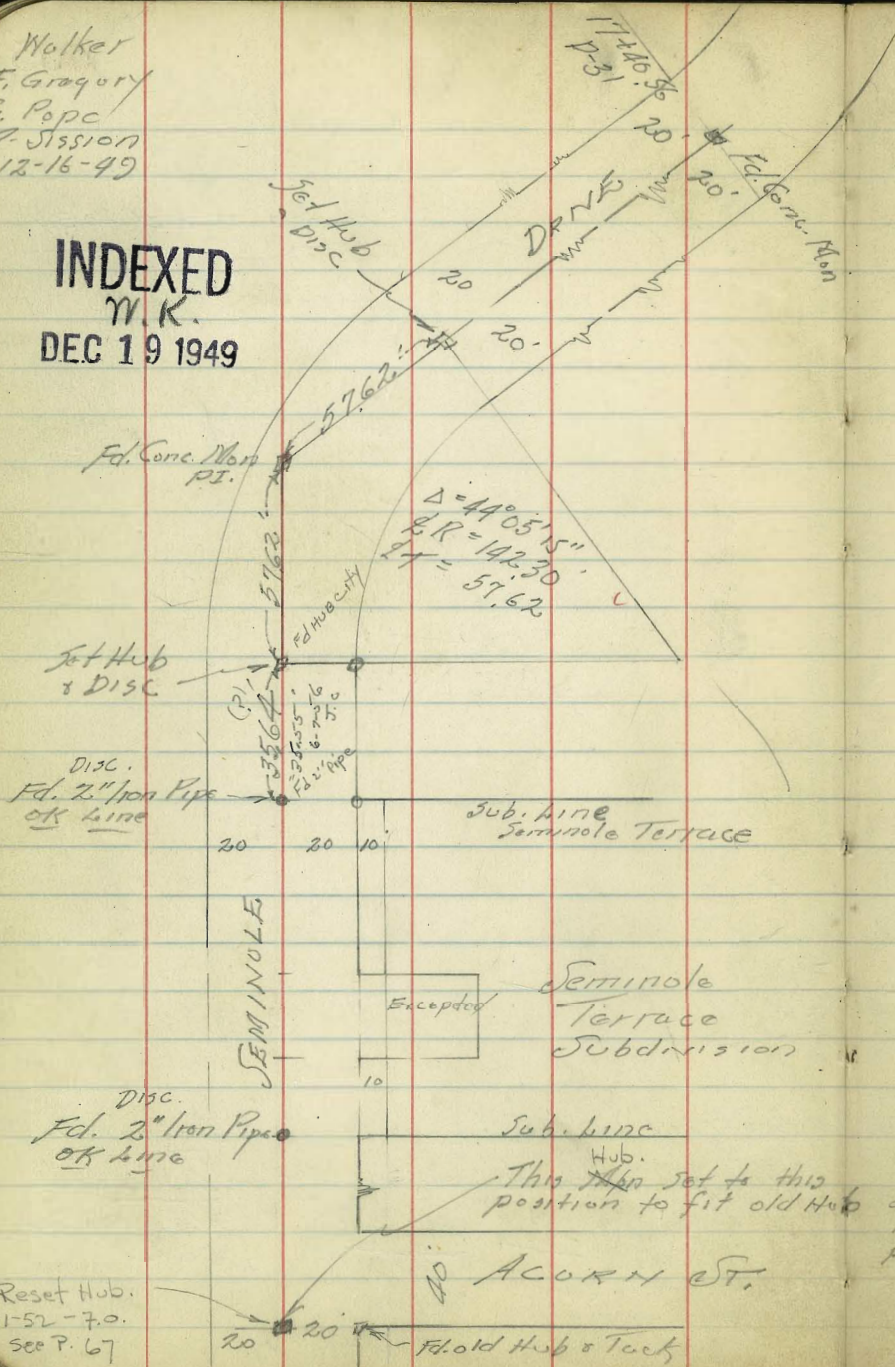 Walker
F. Gregory
E. Pope
Sission
12-16-49
INDEXED
W.K.
DEC 19 1949
17+40.56
P-31
20'
Fd. Conc. Mon
20'
Set Hub
& DISC
DRIVE
20
20'
57.62'
Fd. Conc. Mon
P.I.
57.62'
Δ = 44°05'15"
℄ R = 142.30'
℄ T = 57.62
Fd HUB City
Set Hub
& DISC
35.64 (?)
= 35.55'
Fd 2" Pipe
6-7-56
J.C.
DISC.
Fd. 2" Iron Pipe
OK Line
Sub. Line
Seminole Terrace
20 20 10'
SEMINOLE
Excepted
Seminole
Terrace
Subdivision
10
DISC.
Fd. 2" Iron Pipe
OK Line
Sub. Line
Hub.
This Mon Set to this
position to fit old Hub
40'
ACORN ST.
Reset Hub.
1-52-7.0.
See P. 67
20 20'
Fd. old Hub & Tack